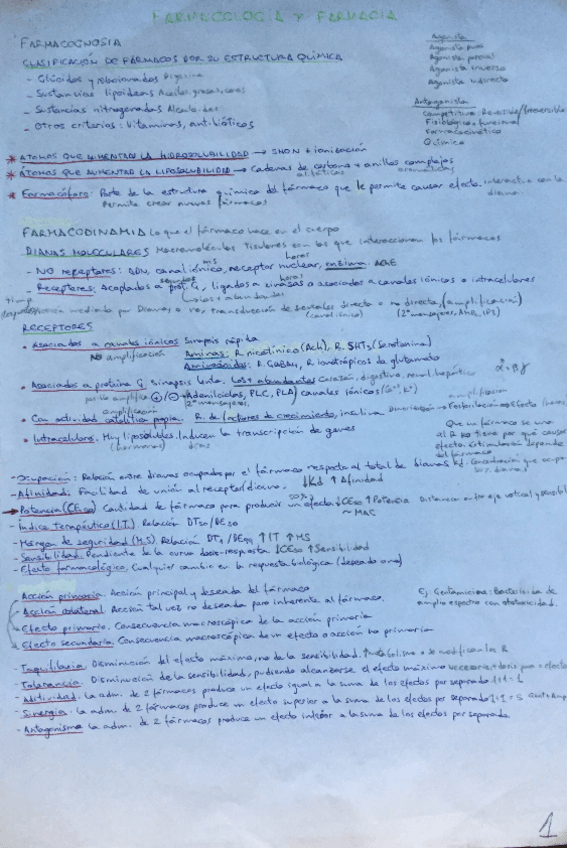 FARMACOLOGÍA Y FARMACIA
FARMACOGNOSIA
CLASIFICACIÓN DE FÁRMACOS POR SU ESTRUCTURA QUÍMICA
- Glúcidos y relacionados Digoxina
- Sustancias lipoideas Aceites
- Sustancias nitrogenadas Alcaloides
- Otros criterios: Vitaminas, antibióticos
Agonista
Agonista puro
Agonista parcial
Agonista inverso
Agonista indirecto
Antagonista
Competitivo: Reversible/Irreversible
Fisiológico o funcional
Farmacocinético
Químico
* ÁTOMOS QUE AUMENTAN LA HIDROSOLUBILIDAD → SHON + ionización
* ÁTOMOS QUE AUMENTAN LA LIPOSOLUBILIDAD → Cadenas de carbono + anillos complejos
alifáticas aromáticos
* Farmacóforo: Parte de la estructura química del fármaco que le permite causar efecto. interactúa con la diana
Permite crear nuevos fármacos
FARMACODINAMIA Lo que el fármaco hace en el cuerpo
DIANAS MOLECULARES Macromoléculas tisulares con las que interaccionan los fármacos
ms horas
- NO receptores: ADN, canal iónico, receptor nuclear, enzima: AChE
segundos horas
- Receptores: Acoplados a prot. G, ligados a cinasas o asociados a canales iónicos o intracelulares
mediada por Dianas o no, transducción de señales directa o no directa, (amplificación)
(canal iónico) (2º mensajeros, AMPc, IP3)
RECEPTORES
• Asociados a canales iónicos Sinapsis rápida
NO amplificación Aminas: R. nicotínico (Ach), R. 5HT3 (Serotonina)
Aminoácidos: R. GABAA, R. ionotrópicos de glutamato
• Asociados a proteína G sinapsis lenta. Los + abundantes Corazón, digestivo, neural, hepático
α β γ
amplificación 2º mensajeros
• Con actividad catalítica propia R. de factores de crecimiento, insulina Dimerización → Fosforilación → Efecto
amplificación
• Intracelulares: Muy liposolubles. Inducen la transcripción de genes
(hormonas) días
Que un fármaco se una al R no tiene por qué causar efecto. Estimulación depende del fármaco
- Ocupación: Relación entre dianas ocupadas por el fármaco respecto al total de dianas Kd: Concentración que ocupa 50% dianas
- Afinidad: Facilidad de unión al receptor/diana. ↓Kd ↑Afinidad
→ Potencia (CE50) Cantidad de fármaco para producir un efecto 50% ↓CE50 ↑Potencia Distancia entre eje vertical y
~ MAC
- Índice Terapéutico (I.T.) Relación DT50/DE50
- Márgen de seguridad (M.S) Relación DT1/DE99 ↑IT ↑MS
- Sensibilidad. Pendiente de la curva dosis-respuesta ↓CE50 ↑Sensibilidad
- Efecto farmacológico: Cualquier cambio en la respuesta biológica (deseado o no)
Acción primaria Acción principal y deseada del fármaco
Acción colateral Acción tal vez no deseada pero inherente al fármaco.
Efecto primario. Consecuencia macroscópica de la acción primaria
Efecto secundario Consecuencia macroscópica de un efecto o acción no primaria
Ej. Gentamicina: Bactericida de amplio espectro con ototoxicidad.
- Taquifilaxia Disminución del efecto máximo, no de la sensibilidad. ↑Metabolismo o se modifican los R
- Tolerancia. Disminución de la sensibilidad, pudiendo alcanzarse el efecto máximo
- Aditividad. La adm. de 2 fármacos produce un efecto igual a la suma de los efectos por separado
- Sinergia. La adm. de 2 fármacos produce un efecto superior a la suma de los efectos por separado
- Antagonismo La adm. de 2 fármacos produce un efecto inferior a la suma de los efectos por separado
1